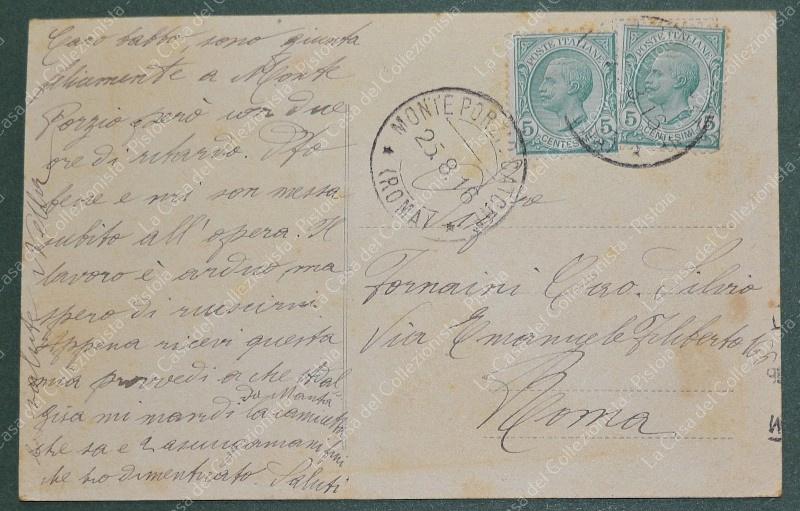 Caro babbo, sono giunta
a Monte
Porzio però con due
ore di ritardo. Sto
bene e mi son messa
subito all'opera. Il
lavoro è arduo, ma
spero di riuscirvi.
Appena ricevi questa
mia provvedi a che
mi mandi la
che sa e 2 asciugamani
che ho dimenticato. Saluti
POSTE ITALIANE
5 CENTESIMI 5
POSTE ITALIANE
5 CENTESIMI 5
MONTE PORZIO CATONE
25.8.16
(ROMA)
Fornaini Cav. Silvio
Via Emanuele Filiberto
Roma
La Casa del Collezionista - Pistoia